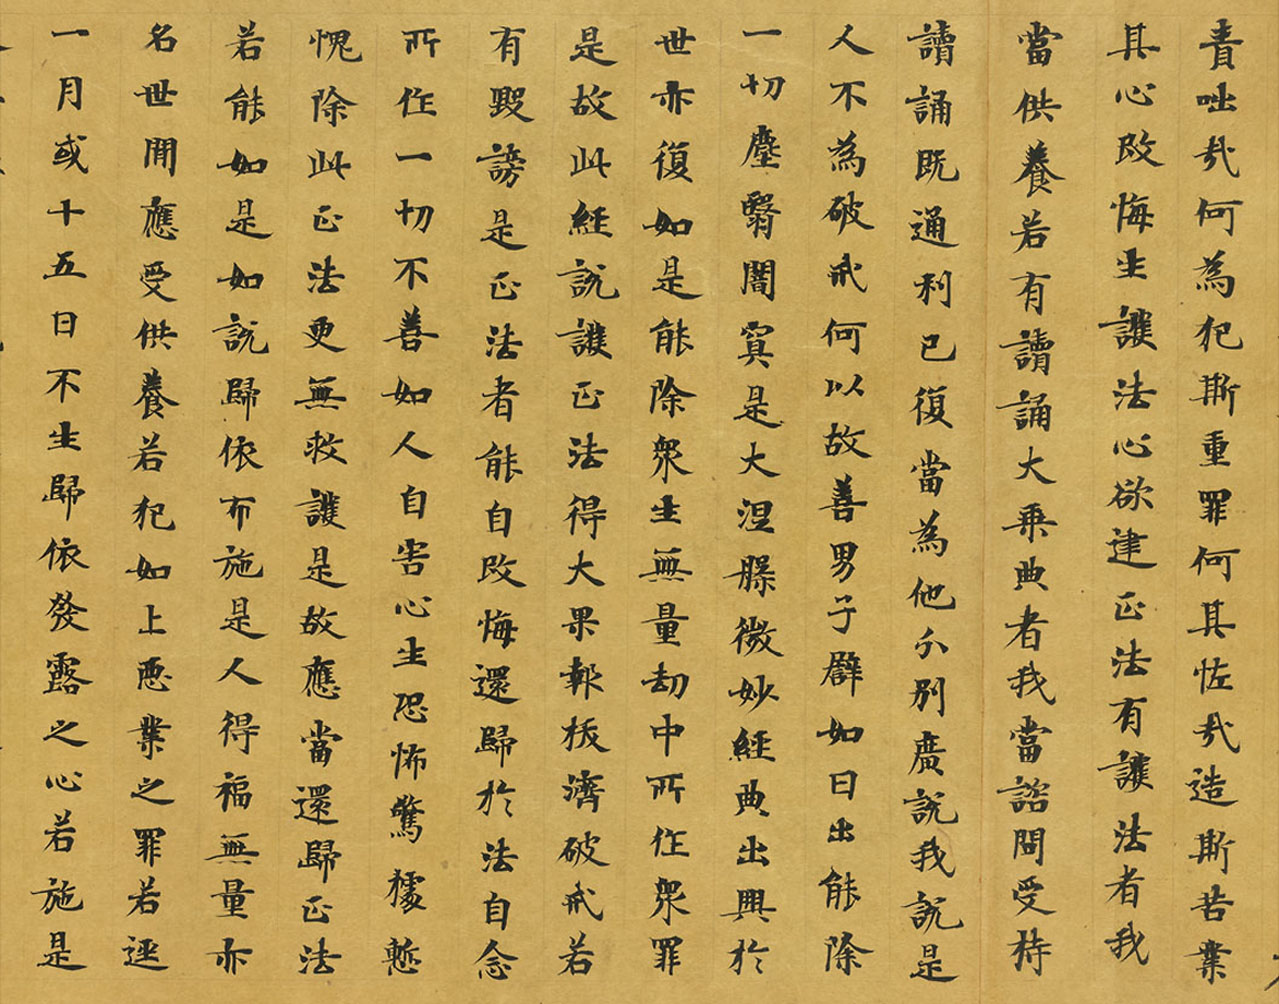 責咄哉何為犯斯重罪何其怪哉造斯苦業
其心改悔生護法心欲建正法有護法者我
當供養若有讀誦大乗典者我當諮問受持
讀誦既通利已復當為他分別廣說我說是
人不為破戒何以故善男子譬如日出能除
一切塵翳闇冥是大涅槃微妙經典出興於
世亦復如是能除衆生無量劫中所作衆罪
是故此經說護正法得大果報拔濟破戒若
有毀謗是正法者能自改悔還歸於法自念
所作一切不善如人自害心生恐怖驚懅慙
愧除此正法更無救護是故應當還歸正法
若能如是如說歸依布施是人得福無量亦
名世間應受供養若犯如上惡業之罪若逕
一月或十五日不生歸依發露之心若施是